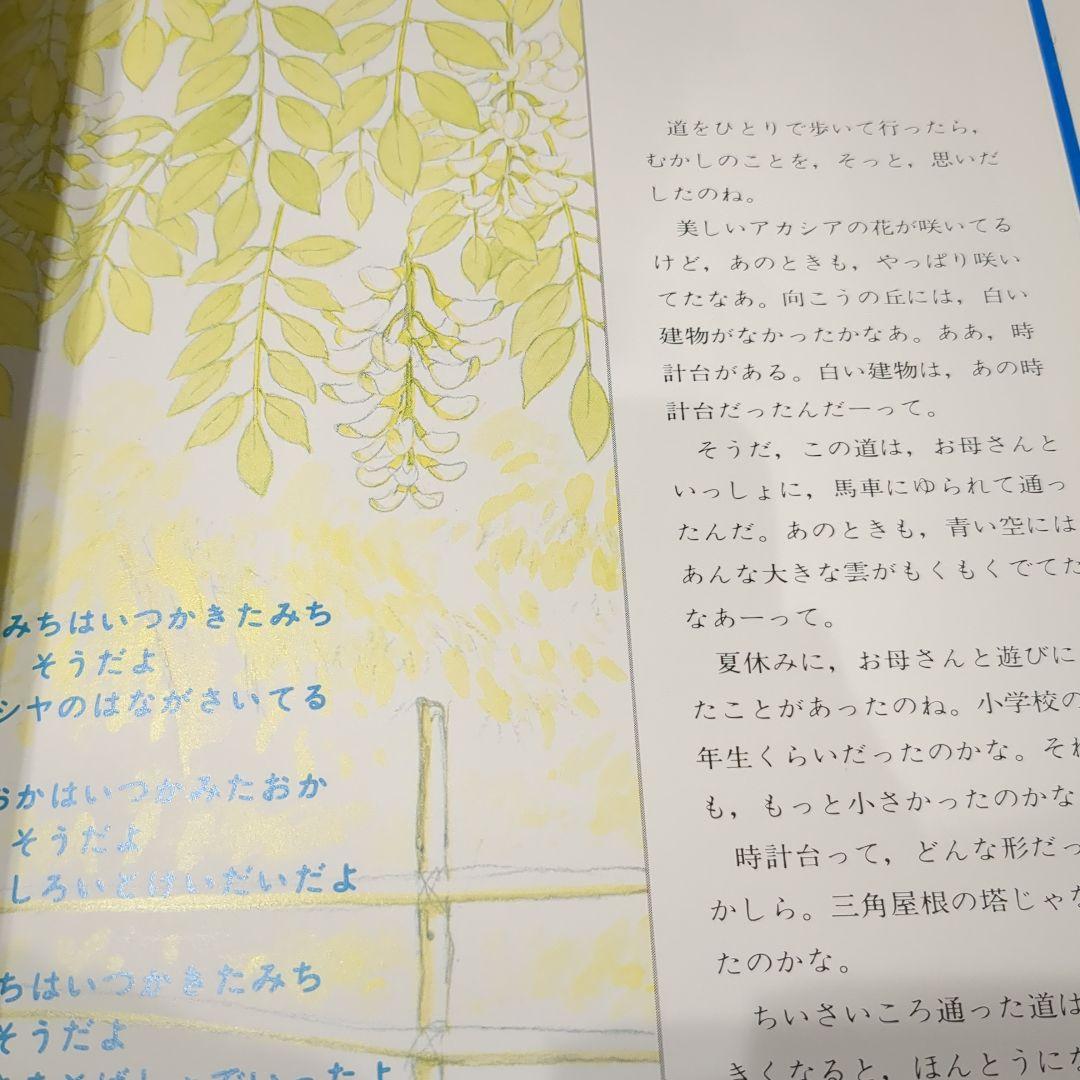 みちはいつかきたみち
そうだよ
シヤのはながさいてる
おかはいつかみたおか
そうだよ
しろいとけいだいだよ
ちはいつかきたみち
そうだよ
道をひとりで歩いて行ったら，
むかしのことを，そっと，思いだ
したのね。
美しいアカシアの花が咲いてる
けど，あのときも，やっぱり咲い
てたなあ。向こうの丘には，白い
建物がなかったかなあ。ああ，時
計台がある。白い建物は，あの時
計台だったんだーって。
そうだ，この道は，お母さんと
いっしょに，馬車にゆられて通っ
たんだ。あのときも，青い空には
あんな大きな雲がもくもくでてた
なあーって。
夏休みに，お母さんと遊びに
たことがあったのね。小学校の
年生くらいだったのかな。それ
も，もっと小さかったのかな
時計台って，どんな形だっ
かしら。三角屋根の塔じゃな
たのかな。
ちいさいころ通った道は
きくなると，ほんとうにな